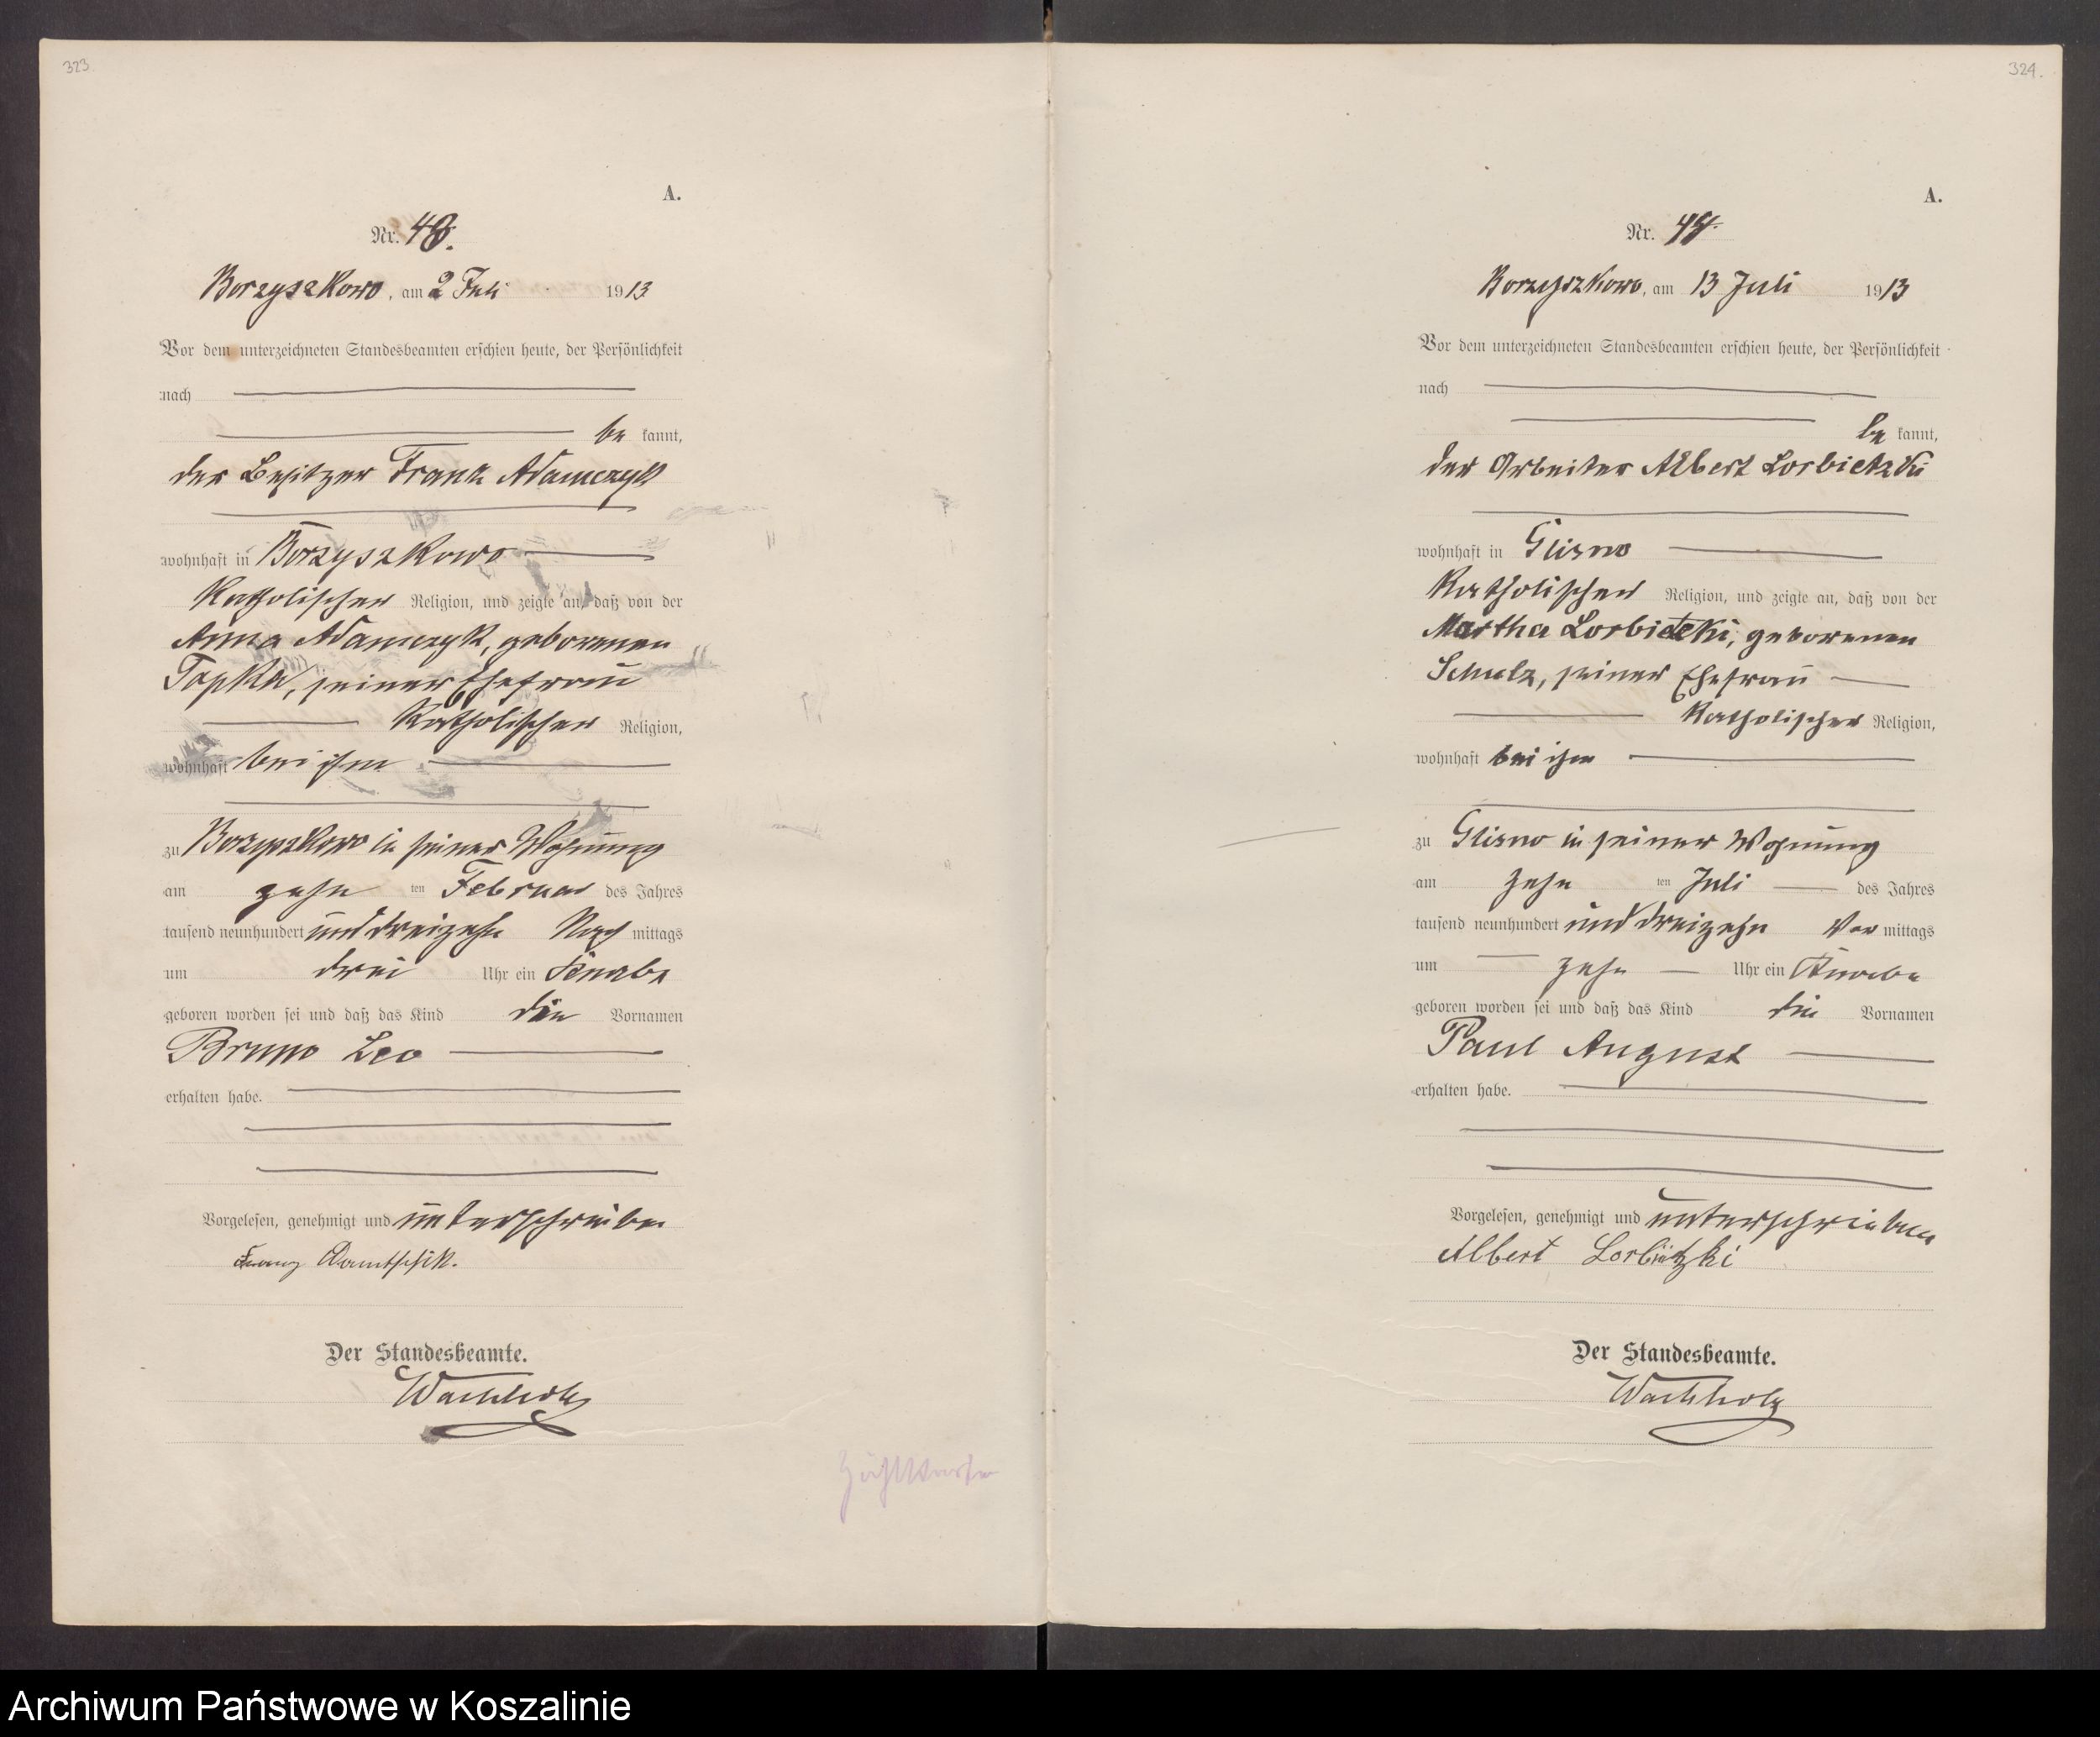 323
A.
Nr. 48.
Borzyszkowo, am 2 Juli 1913
Vor dem unterzeichneten Standesbeamten erschien heute, der Persönlichkeit
nach
be kannt,
der Besitzer Frank Adamczyk
wohnhaft in Borzyszkowo
Katholischer Religion, und zeigte an, daß von der
Anna Adamczyk, geborenen
Topka, seiner Ehefrau
Katholischer Religion,
wohnhaft bei ihm
zu Borzyszkowo in seiner Wohnung
am zehn ten Februar des Jahres
tausend neunhundert und dreizehn Nach mittags
um drei Uhr ein Knabe
geboren worden sei und daß das Kind die Vornamen
Bruno Leo
erhalten habe.
Vorgelesen, genehmigt und unterschrieben
Franz
Der Standesbeamte.
Wachholz
Zählkarte
324.
A.
Nr. 49.
Borzyszkowo, am 13 Juli 1913
Vor dem unterzeichneten Standesbeamten erschien heute, der Persönlichkeit
nach
be kannt,
der Arbeiter Albert Lorbietzki
wohnhaft in Glisno
Katholischer Religion, und zeigte an, daß von der
Martha Lorbietzki, geborenen
Schulz, seiner Ehefrau
Katholischer Religion,
wohnhaft bei ihm
zu Glisno in seiner Wohnung
am zehn ten Juli des Jahres
tausend neunhundert und dreizehn Vor mittags
um zehn Uhr ein Knabe
geboren worden sei und daß das Kind die Vornamen
Paul August
erhalten habe.
Vorgelesen, genehmigt und unterschrieben
Albert Lorbietzki
Der Standesbeamte.
Wachholz
Archiwum Państwowe w Koszalinie